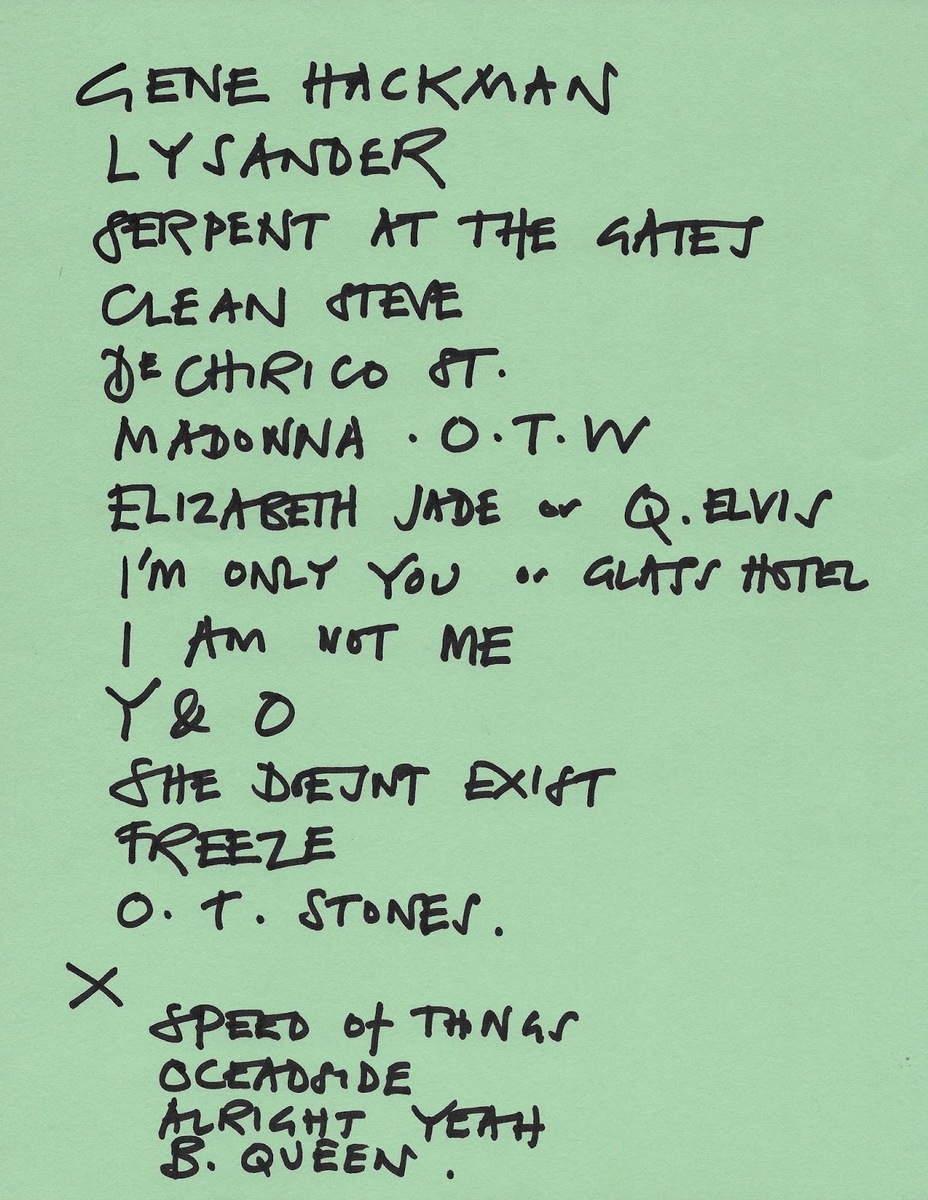 GENE HACKMAN
LYSANDER
SERPENT AT THE GATES
CLEAN STEVE
DE CHIRICO ST.
MADONNA . O.T.W
ELIZABETH JADE or Q. ELVIS
I'M ONLY YOU or GLASS HOTEL
I AM NOT ME
Y & O
SHE DOESNT EXIST
FREEZE
O. T. STONES.
X
SPEED of THINGS
OCEANSIDE
ALRIGHT YEAH
B. QUEEN.